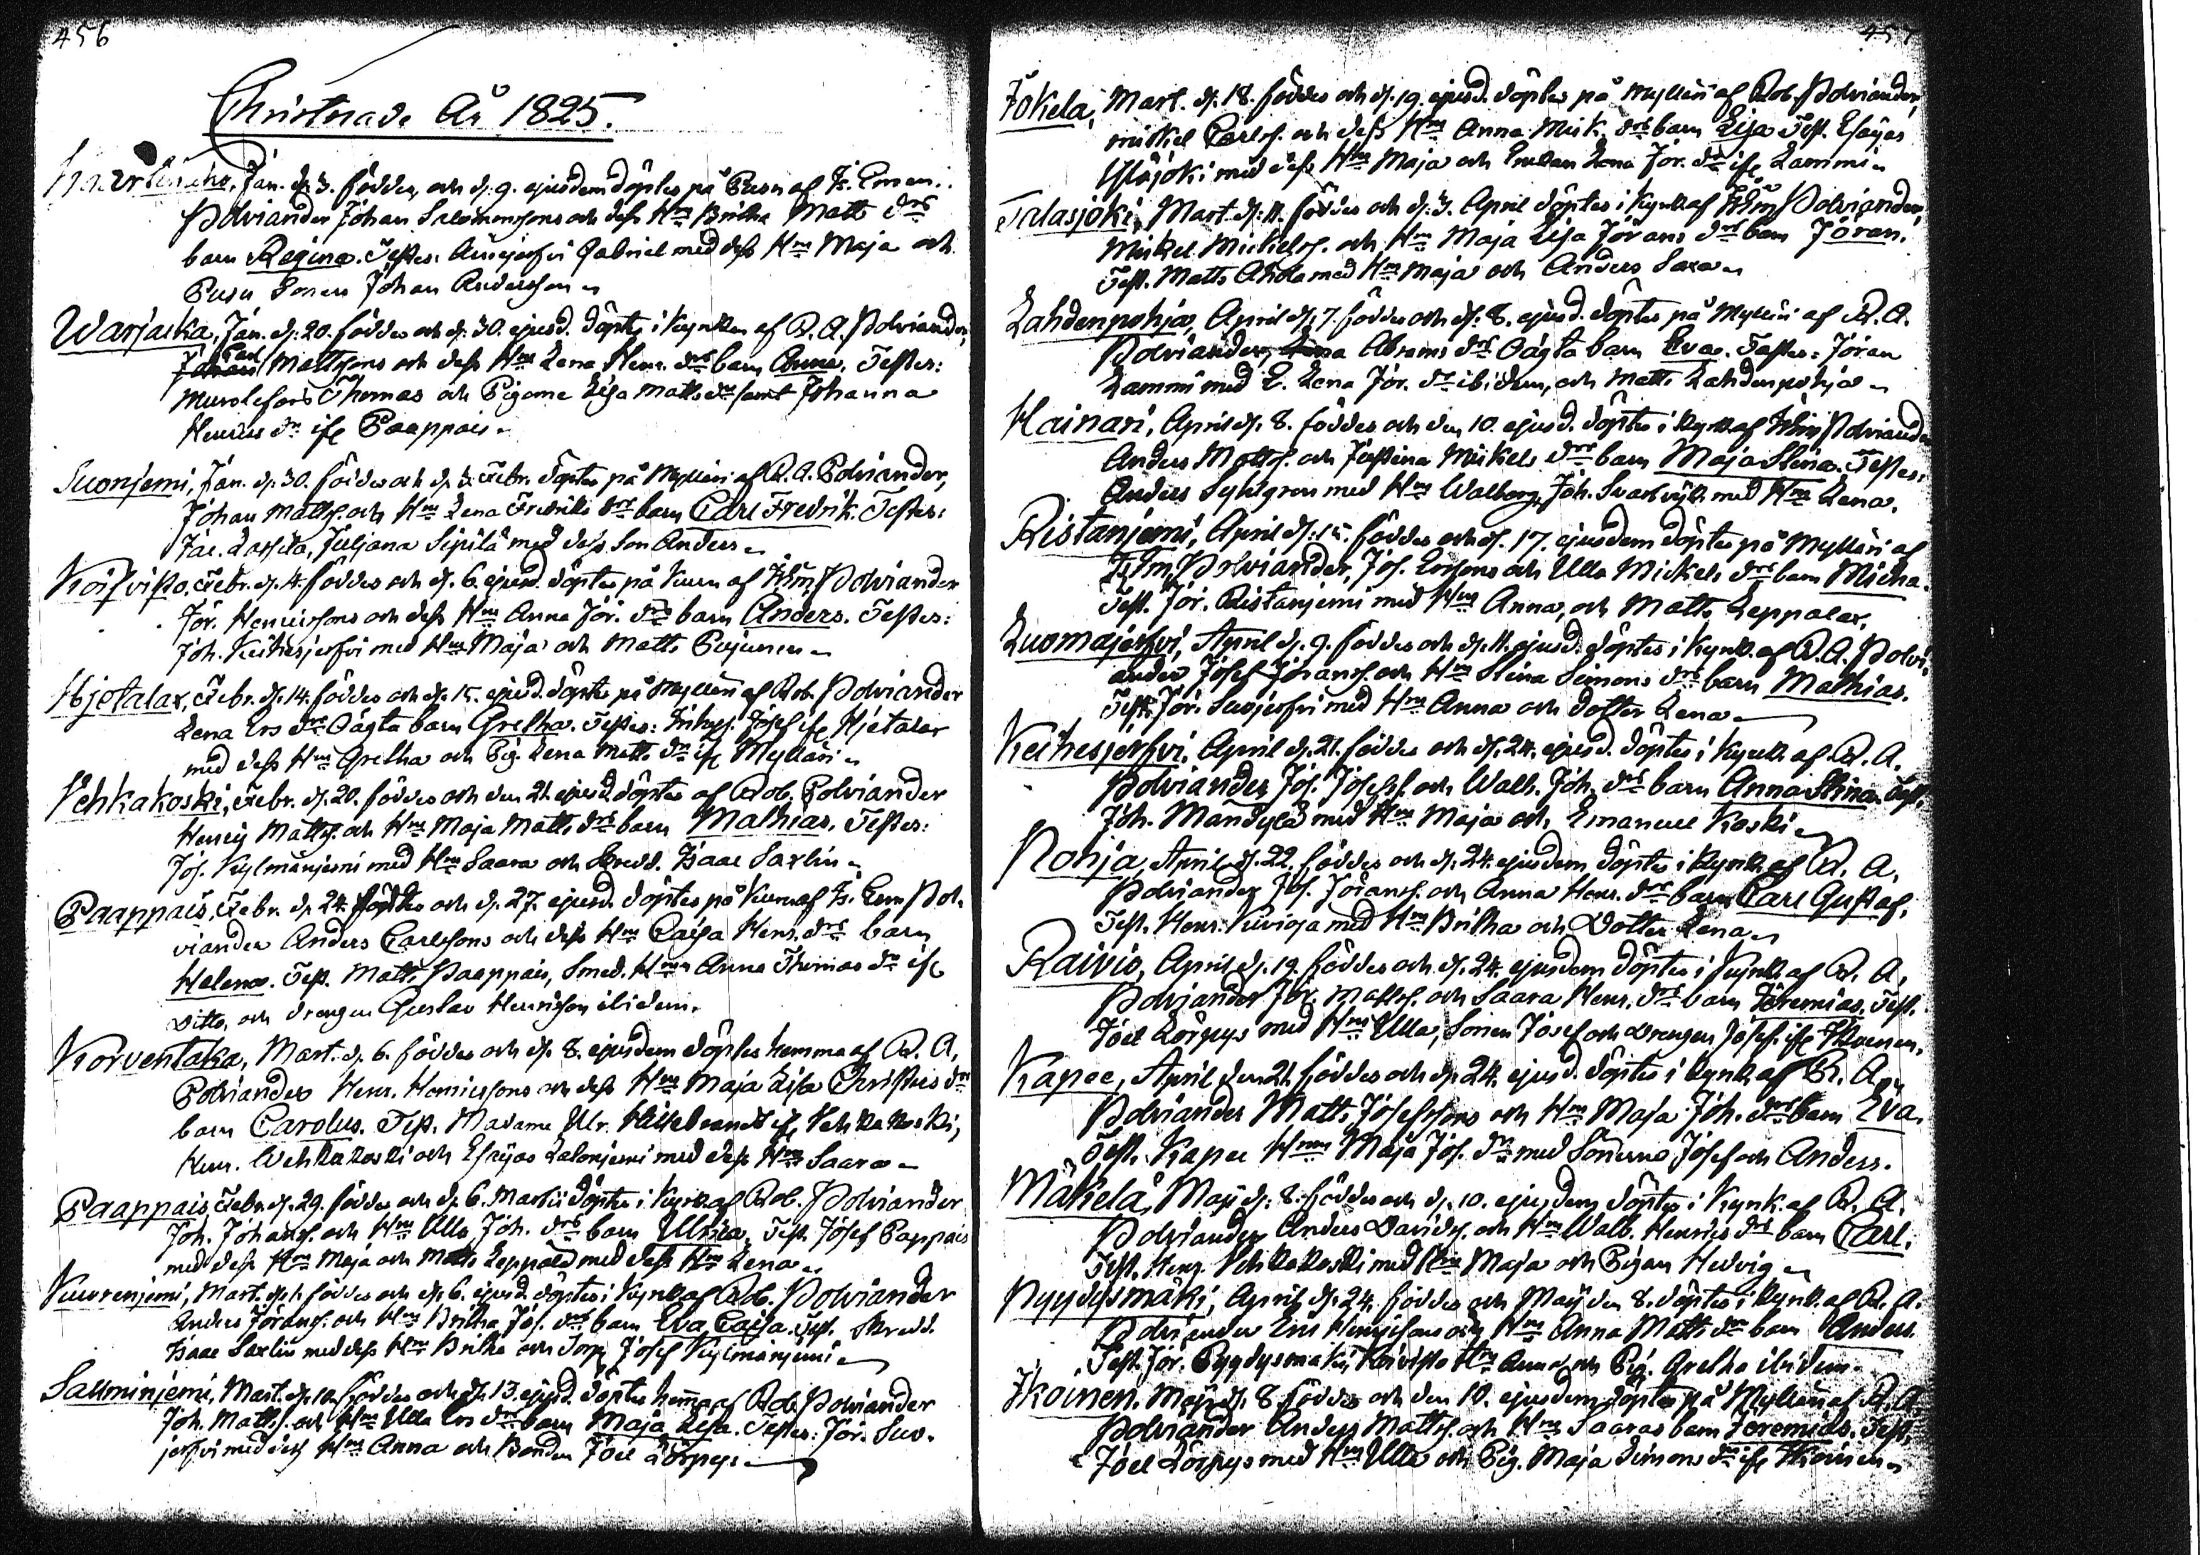 456
Christnade År 1825.
Jan. d. 3. föddes, och d. 9. ejusdem döptes på af
Polviander Johan Salomonssons och dess Hru Britha Matts drs
barn Regina. Testes: Gabriel med dess Hru Maja och
Sonen Johan Andersson
Warjakka, Jan. d. 20. föddes och d. 30. ejusd. döptes i Kyrkan af R. A. Polviander,
Carl Mattssons och dess Hru Lena Henr. drs barn Anna. Testes:
Thomas och Pigorne Lisa Matts dr samt Johanna
Henrics dr ifr Paappais
Suonjemi, Jan. d. 30. föddes och d. Febr. döptes på Mylläri af R. A. Polviander,
Johan Mattss. och Hru Lena Fredriks drs barn Carl Fredrik. Testes:
Jac. Juljana Sipilä med dess Son Anders
Koifvisto, Febr. d. 4. föddes och d. 6. ejusd. döptes på af Polviander
Jör. Henricssons och dess Hru Anna Jör. drs barn Anders. Testes:
Joh. Keihesjerfvi med Hru Maja och Matts
Hjetalax, Febr. d. 14. föddes och d. 15. ejusd. döptes på Mylläri af Rob. Polviander
Lena Ers drs Oägta barn Gretha. Testes: Josef ifr Hjetalax
med dess Hru Gretha och Pig. Lena Matts dr ifr Mylläri
Vehkakoski, Febr. d. 20. föddes och den 21. ejusd. döptes af Rob. Polviander
Henric Mattss. och Hru Maja Matts drs barn Mathias. Testes:
Jos. Kylmänjemi med Hru Saara och Skredd. Isaac Saxlin
Paappais, Febr. d. 24. föddes och d. 27. ejusd. döptes på af Pol-
viander Anders Carlssons och dess Hru Caisa Henr. drs barn
Helena. Test. Matts Paappais, Smed. Hru Anna Thomas dr ifr
ditto, och drengen Gustav Henricsson ibidem.
Korventaka, Mart. d. 6. föddes och d. 8. ejusdem döptes hemma af R. A.
Polviander Henr. Henricssons och dess Hru Maja Lisa Christers drs
barn Carolus. Test. Madame Ulr. Hillebrandt ifr Vehkakoski,
Henr. Wehkakoski och Esaijas Lalonjemi med dess Hru Saara
Paappais, Febr. d. 29. föddes och d. 6. Martii döptes i Kyrk. af Rob. Polviander
Joh. Johanss. och Hru Ulla Joh. drs barn Ulrica. Test. Josef Pappais
med dess Hru Maja och Matts Leppälä med dess Hru Lena
Kuurenjemi, Mart. d. 1. föddes och d. 6. ejusd. döptes i Kyrk. af Rob. Polviander
Anders Jöranss. och Hru Britha Jos. drs barn Eva Caisa. Test. Skredd.
Isaac Saxlin med dess Hru Britha och Torp. Josef Kylmänjemi
Salminjemi, Mart. d. 10. föddes och d. 13. ejusd. döptes hemma af Rob. Polviander
Joh. Mattss. och Hru Ulla Ers drs barn Maja Lisa. Testes: Jör. Suo-
jerfvi med dess Hru Anna och Bonden Joel Lörppys
457
Jokela, Mart. d. 18. föddes och d. 19. ejusd. döptes på Mylläri af Rob. Polviander,
Mickel Carlss. och dess Hru Anna Mick. drs barn Lisa. Test. Esaijas
Ylläjoki med dess Hru Maja och Enkan Lena Jör. dr ifr Lammi
Talasjoki, Mart. d. 11. föddes och d. 3. April döptes i Kyrk. af Polviander,
Mickel Mickelss. och Hru Maja Lisa Jörans drs barn Jöran.
Test. Matts Ahola med Hru Maja och Anders Saxa
Lahdenpohja, April d. 7. föddes och d. 8. ejusd. döptes på Mylläri af R. A.
Polviander, Abrams drs Oägta barn Eva. Testes: Jöran
Lammi med E. Lena Jör. dr ibidem, och Matts Lahdenpohja
Hainari, April d. 8. föddes och den 10. ejusd. döptes i Kyrk. af Polviander
Anders Mattss. och Justina Mickels drs barn Maja Stina. Testes:
Anders Syhlgren med Hru Walborg, Joh. Svartvijk med Hru Lena.
Ristanjemi, April d. 15. föddes och d. 17. ejusdem döptes på Mylläri af
Polviander, Jos. Erssons och Ulla Mickels drs barn Micha.
Test. Jör. Ristanjemi med Hru Anna, och Matts Leppalax.
Luomajerfvi, April d. 9. föddes och d. 11. ejusd. döptes i Kyrk. af R. A. Polvi-
ander Josef Jöranss. och Hru Stina Simons drs barn Mathias.
Test. Jör. Suojerfvi med Hru Anna och dotter Lena
Keihesjerfvi, April d. 21. föddes och d. 24. ejusd. döptes i Kyrk. af R. A.
Polviander Jos. Josefss. och Walb. Joh. drs barn Anna Stina. Test.
Joh. Mändylä med Hru Maja och Emanuel Koski
Pohja, April d. 22. föddes och d. 24. ejusdem döptes i Kyrk. af R. A.
Polviander Jos. Jöranss. och Anna Henr. drs barn Carl Gustaf.
Test. Henr. Kivioja med Hru Britha och Dotter Lena
Raivio, April d. 19. föddes och d. 24. ejusdem döptes i Kyrk. af R. A.
Polviander Jör. Mattss. och Saara Henr. drs barn Jeremias. Test.
Joel Lörppys med Hru Ulla, Sonen Josef och Drengen Josef ifr Ikoinen.
Kapee, April den 21. föddes och d. 24. ejusd. döptes i Kyrk. af R. A.
Polviander Matts Josefssons och Hru Maja Joh. drs barn Eva.
Test. Kapee Hru Maja Jos. dr med Sönerne Josef och Anders.
Mäkelä, Maji d. 8. föddes och d. 10. ejusdem döptes i Kyrk. af R. A.
Polviander Anders Davidss. och Hru Walb. Henrics drs barn Carl.
Test. Henr. Vehkakoski med Hru Maja och Pigan Hedvig
Pyydysmäki, April d. 24. föddes och Maij den 8. döptes i Kyrk. af R. A.
Polviander Eric Henricssons och Hru Anna Matts drs barn Anders.
Test. Jör. Pyydysmäki, Koivisto Hru Anna och Pig. Gretha ibidem
Ikoinen, Maij d. 8. föddes och den 10. ejusdem döptes på Mylläri af R. A.
Polviander Anders Mattss. och Hru Saaras barn Jeremias. Test.
Joel Lörppys med Hru Ulla och Pig. Maja Simons dr ifr Ikoinen